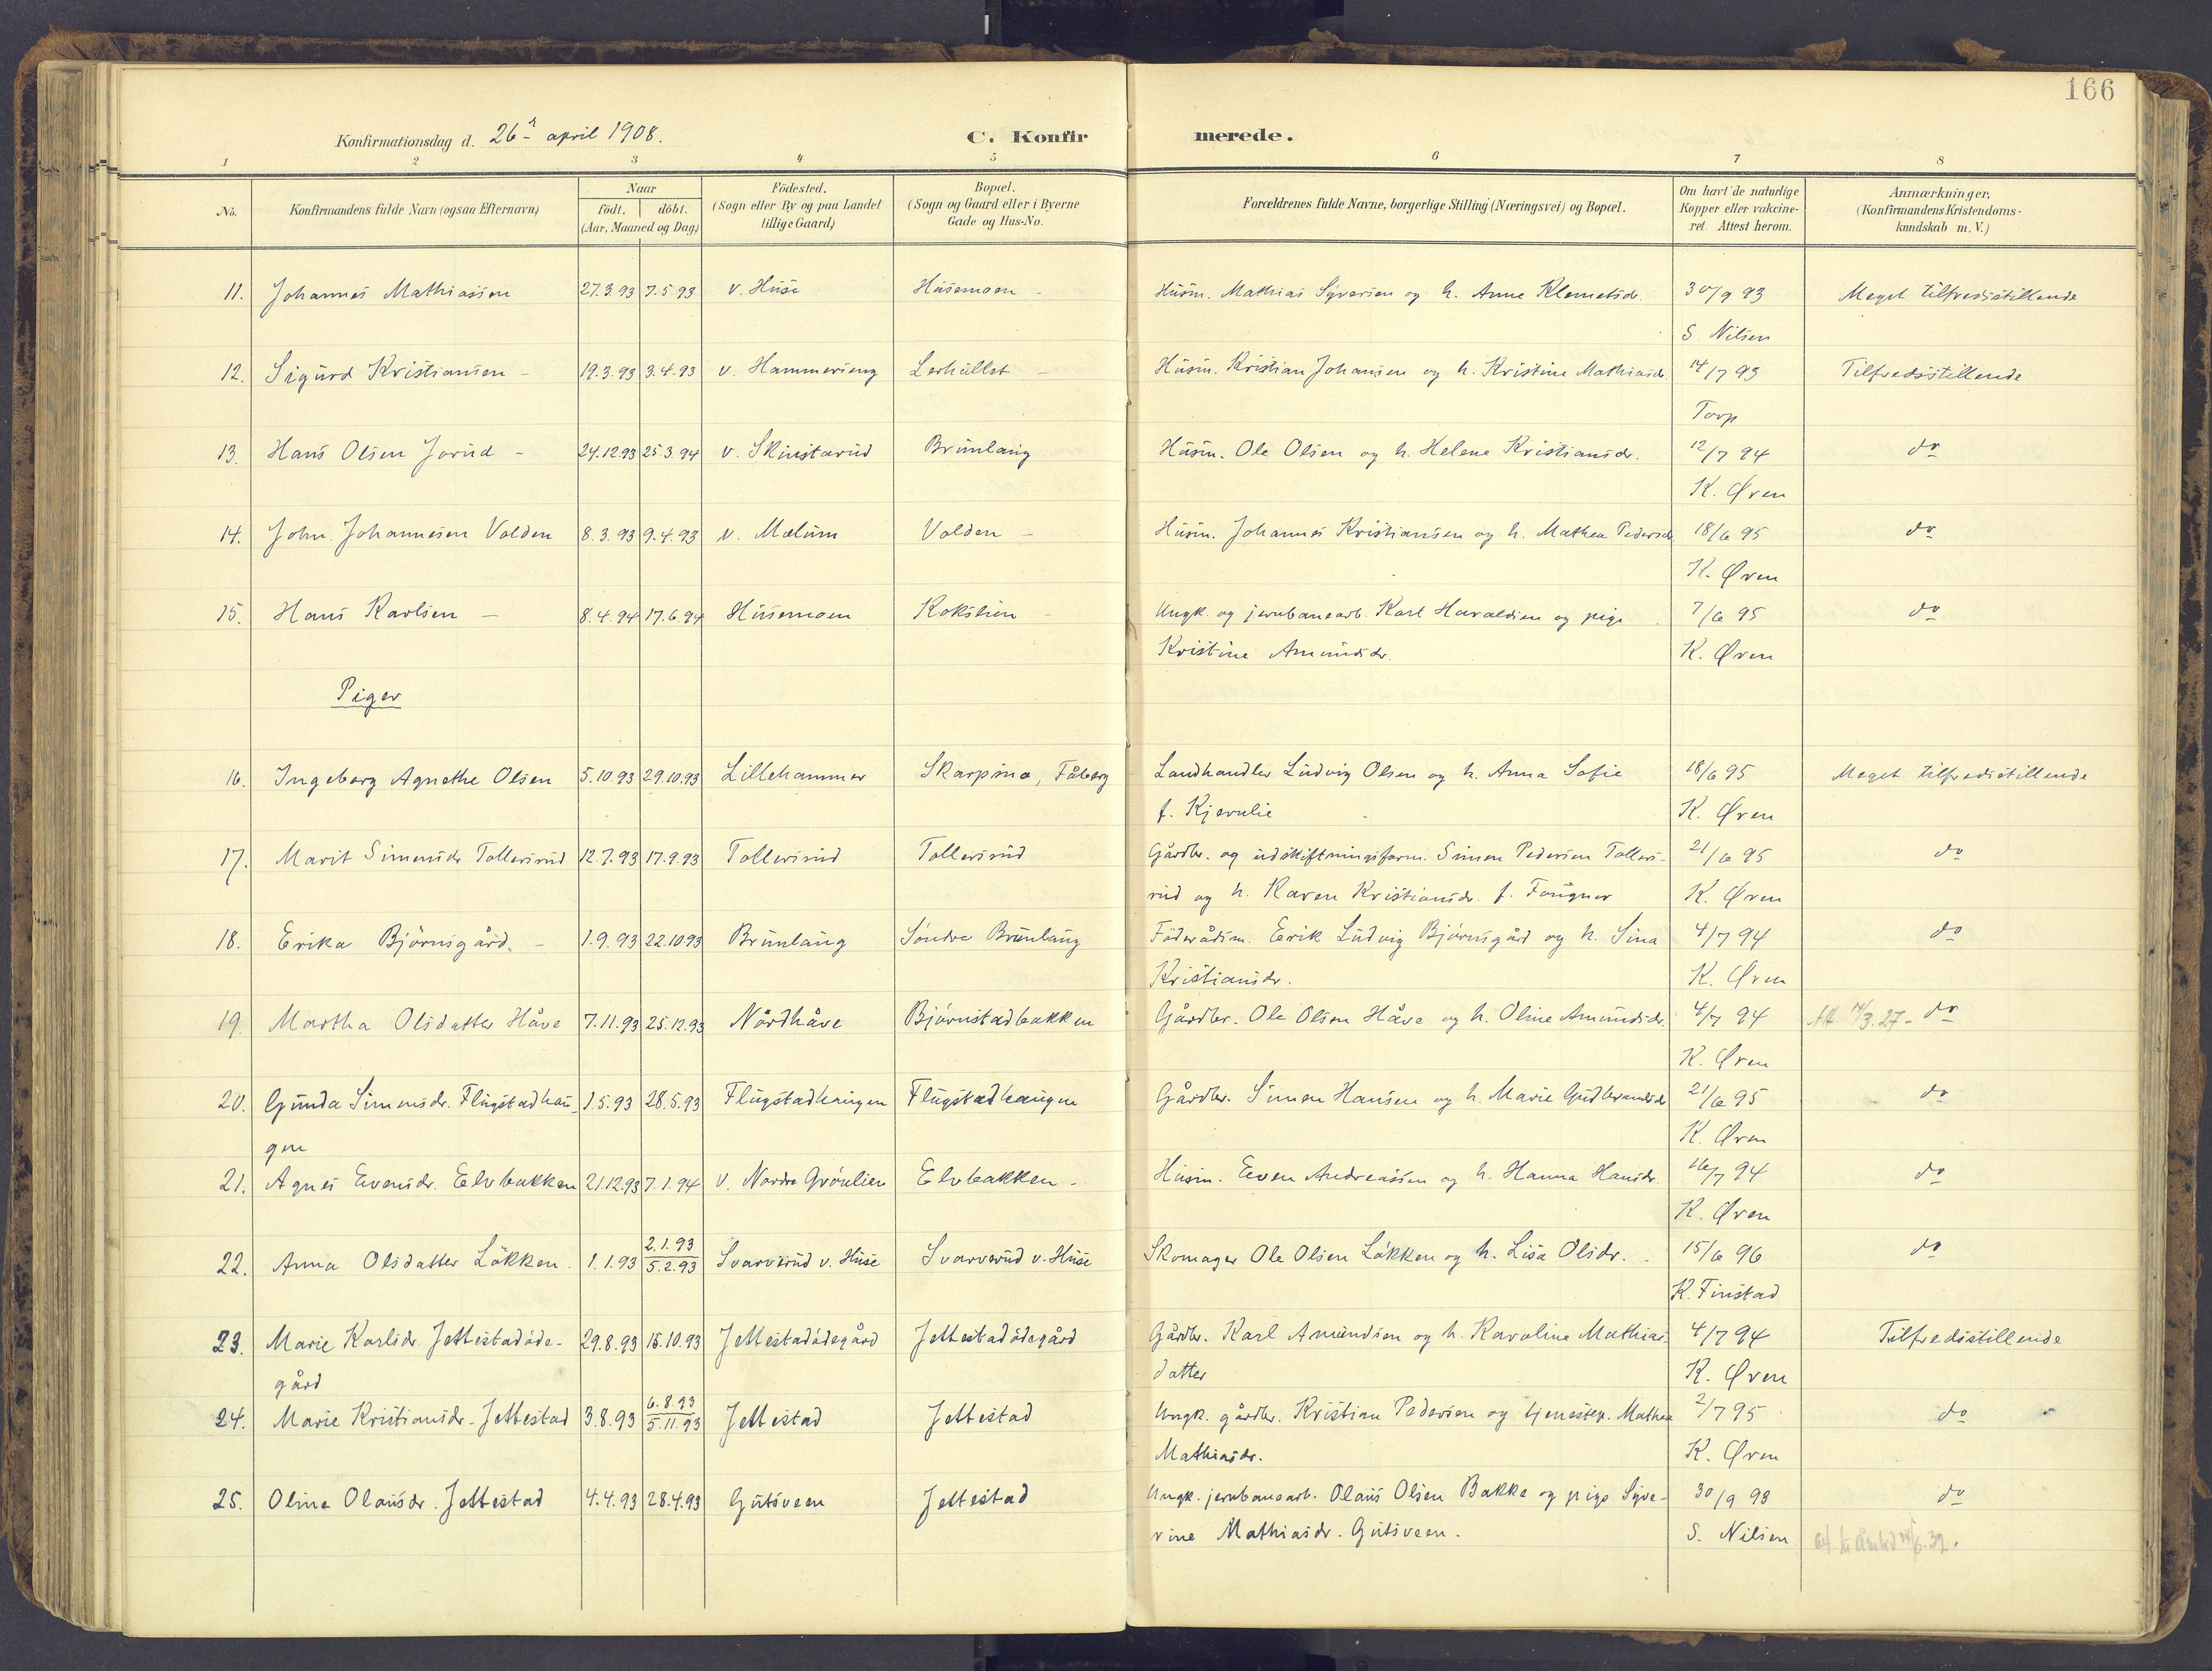 166
Konfirmationsdag d. 26. april 1908.
C. Konfirmerede.
1 2 3 4 5 6 7 8
No.
Konfirmandens fulde Navn (ogsaa Efternavn)
Naar
födt. döbt.
(Aar, Maaned og Dag)
Födested.
(Sogn eller By og paa Landet
tillige Gaard)
Bopæl.
(Sogn og Gaard eller i Byerne
Gade og Hus-No.
Forældrenes fulde Navne, borgerlige Stilling (Næringsvei) og Bopæl.
Om havt de naturlige
Kopper eller vakcine-
ret. Attest herom.
Anmærkninger,
(Konfirmandens Kristendoms-
kundskab m. V.)
11. Johannes Mathiassen 27.3.93 7.5.93 v. Huse Husemoen Husm. Mathias Syversen og h. Anne Klemetsdr. 30/9 93 Meget tilfredsstillende
S. Nilsen
12. Sigurd Kristiansen - 19.3.93 3.4.93 v. Hammerseng Lerhullet - Husm. Kristian Johansen og h. Kristine Mathiasdr. 14/7 93 Tilfredsstillende
Torp
13. Hans Olsen Jorud - 24.12.93 25.3.94 v. Skinstarud Brunlaug Husm. Ole Olsen og h. Helene Kristiansdr. 12/7 94 do
K. Øren
14. John Johannesen Volden 8.3.93 9.4.93 v. Mælum Volden - Husm. Johannes Kristiansen og h. Mathea Pedersdr. 18/6 95 do
K. Øren
15. Hans Karlsen - 8.4.94 17.6.94 Husemoen Kokslien - Ungk. og jernbanearb. Karl Haraldsen og pige 7/6 95 do
Kristine Amundsdr. K. Øren
Piger
16. Ingeborg Agnethe Olsen 5.10.93 29.10.93 Lillehammer Skarpsno, Fåberg Landhandler Ludvig Olsen og h. Anna Sofie 18/6 95 Meget tilfredsstillende
f. Kjernlie K. Øren
17. Marit Simensdr Tollersrud 12.7.93 17.9.93 Tollersrud Tollersrud Gårdbr. og udskiftningsform. Simen Pedersen Tollers- 21/6 95 do
rud og h. Karen Kristiansdr. f. Fougner K. Øren
18. Erika Björnsgård. - 1.9.93 22.10.93 Brunlaug Söndre Brunlaug Föderådsm. Erik Ludvig Björnsgård og h. Sina 4/7 94 do
Kristiansdr. K. Øren
19. Martha Olsdatter Håve 7.11.93 25.12.93 Nordhåve Björnstadbakken Gårdbr. Ole Olsen Håve og h. Oline Amundsdr. 4/7 94 do
K. Øren
20. Gunda Simensdr. Flugstadhau- 1.5.93 28.5.93 Flugstadhaugen Flugstadhaugen Gårdbr. Simen Hansen og h. Marie Gudbrandsdr 21/6 95 do
gen K. Øren
21. Agnes Evensdr. Elvbakken 21.12.93 7.1.94 v. Nordre Grönlien Elvbakken - Husm. Even Andreassen og h. Hanna Hansdr. 16/7 94 do
K. Øren
22. Anna Olsdatter Løkken. 1.1.93 2.1.93 5.2.93 Svarverud v. Huse Svarverud v. Huse Skomager Ole Olsen Løkken og h. Lisa Olsdr. 15/6 96 do
K. Finstad
23. Marie Karlsdr. Jettestadöde- 29.8.93 15.10.93 Jettestadödegård Jettestadödegård Gårdbr. Karl Amundsen og h. Karoline Mathias- 4/7 94 Tilfredsstillende
gård datter K. Øren
24. Marie Kristiansdr. Jettestad 3.8.93 6.8.93 5.11.93 Jettestad Jettestad Ungk. gårdbr. Kristian Pedersen og tjenestep. Mathea 2/7 95 do
Mathiasdr. K. Øren
25. Oline Olausdr. Jettestad 4.4.93 28.4.93 Gutsveen Jettestad Ungk. jernbanearb. Olaus Olsen Bakke og pige Syve- 30/9 93 do
rine Mathiasdr. Gutsveen. S. Nilsen